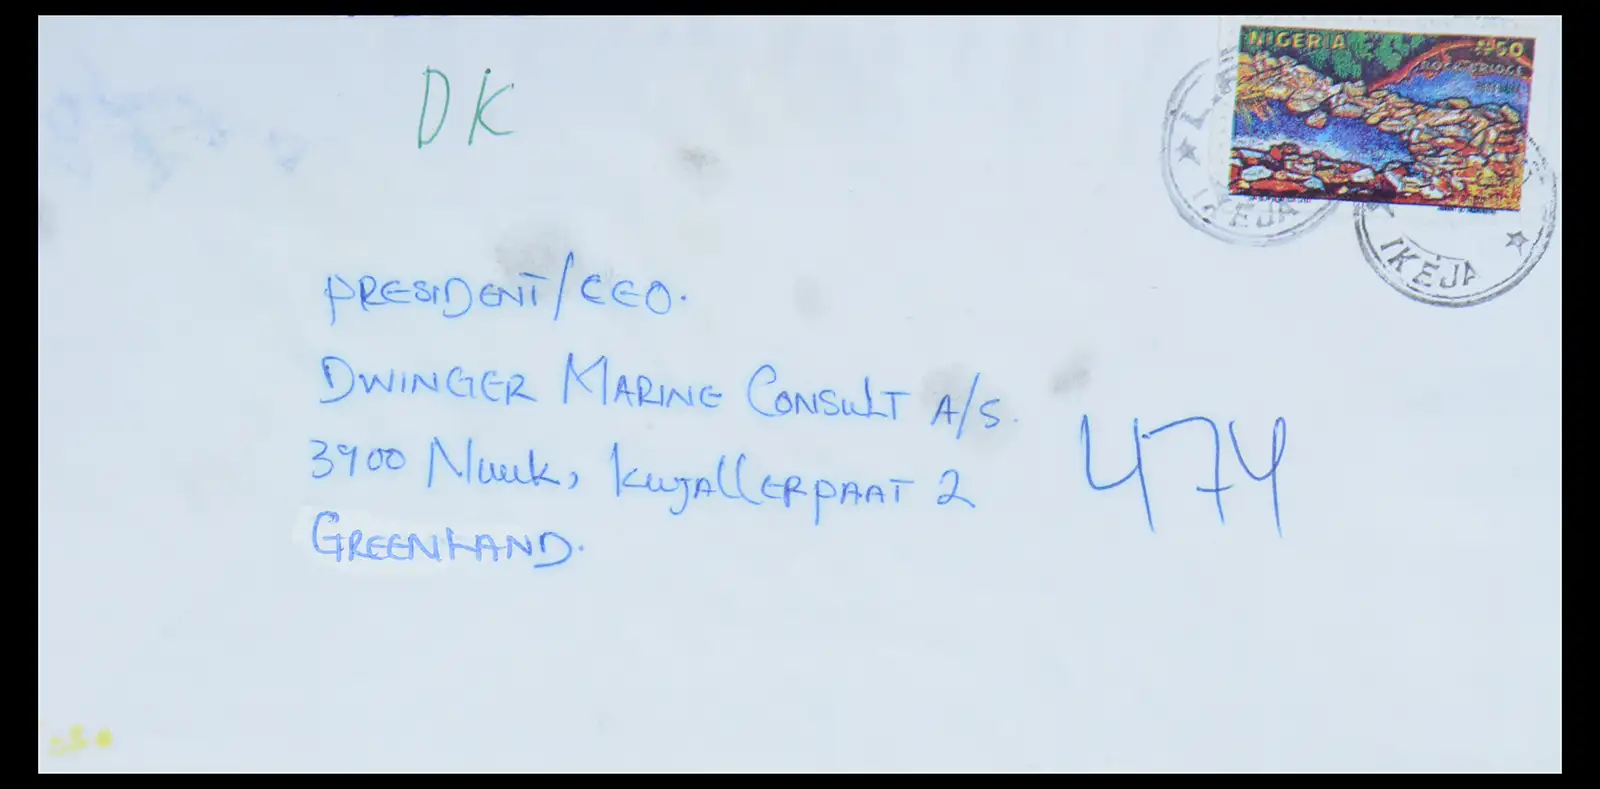 DK
NIGERIA ₦50
ROCK BRIDGE
IKEJA
IKEJA
PRESIDENT/CEO.
DWINGER MARINE CONSULT A/S.
3900 Nuuk, KujAllERPAAT 2
474
GREENLAND.